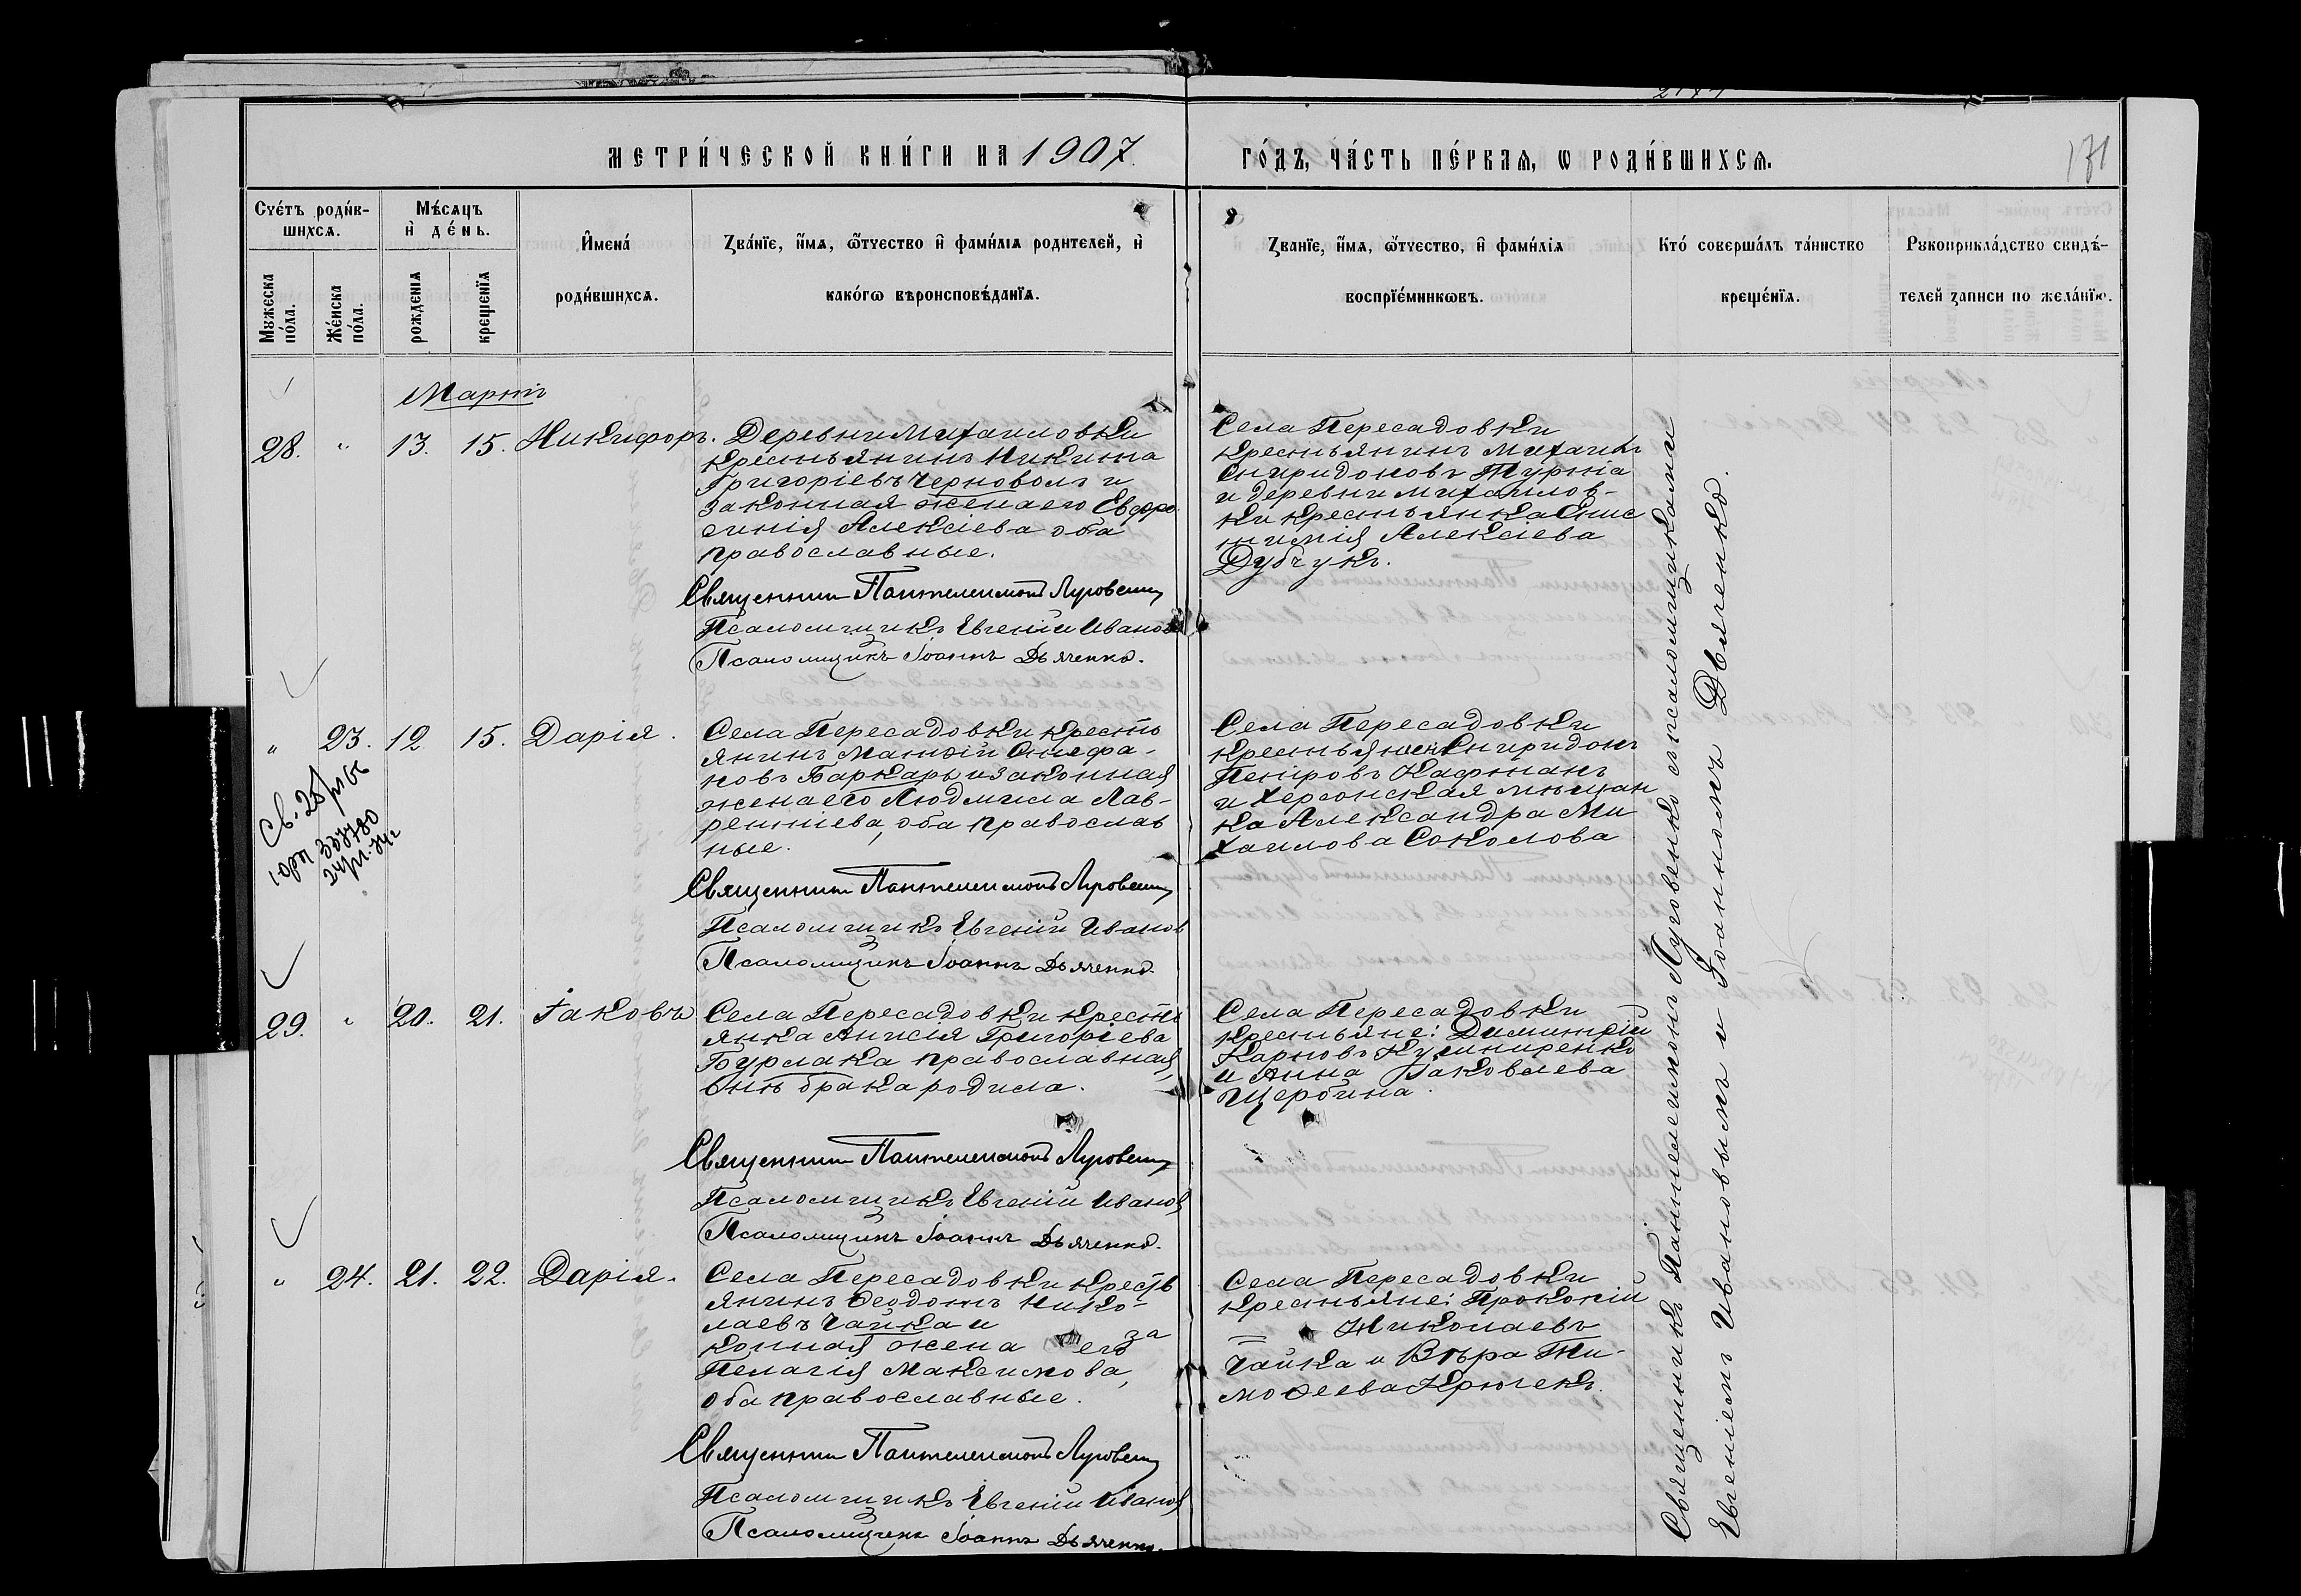 МЕТРИ́ЧЕСКОЙ КНИ́ГИ НА 1907.
ГО́ДЪ, ЧА́СТЬ ПЕ́РВАѦ, Ѡ РОДИ́ВШИХСѦ.
171
Сче́тъ роди́в-
шихсѧ.
Мꙋжеска
по́ла.
Же́нска
по́ла.
Мѣ́сѧцъ
и҆ де́нь.
рожденїѧ
крещенїѧ
И҆мена́
роди́вшихсѧ.
Зва́нїе, и҆́мѧ, ѻ҆́тчество и҆ фами́лїѧ родителей, и҆
како́гѡ вѣроисповѣ́данїѧ.
Зва́нїе, и҆́мѧ, ѻ҆́тчество, и҆ фами́лїѧ
воспрїе́мникѡвъ.
Кто́ соверша́лъ та́инство
креще́нїѧ.
Рꙋкоприкла́дство свидѣ́-
телей записи по жела́нїю.
Мартъ
28. " 13. 15. Никифоръ.
Деревни Михайловки
крестьянинъ Никита
Григоріевъ Черноволъ и
законная жена его Евфро
синія Алексіева оба
православные.
Священникъ Пантелеимонъ Луговенко
Псаломщикъ Евгеній Ивановъ
Псаломщикъ Іоаннъ Дьяченко.
Села Пересадовки
крестьянинъ Михаилъ
Спиридоновъ Турта
и деревни Михайлов-
ки крестьянка Епис
тимія Алексіева
Дубчукъ.
" 23. 12 15. Дарія.
Св. 25/III 66
Села Пересадовки кресть
янинъ Матѳій Стефа-
новъ Баркарь и законная
жена его Людмила Лав-
рентіева, оба православ
ные.
Священникъ Пантелеимонъ Луговенко
Псаломщикъ Евгеній Ивановъ
Псаломщикъ Іоаннъ Дьяченко.
Села Пересадовки
крестьянинъ Спиридонъ
Петровъ Кафтанъ
и Херсонская мѣщан
ка Александра Ми
хаилова Соколова
29. " 20. 21. Іаковъ
Села Пересадовки кресть
янка Анисія Григоріева
Бурлака православная,
внѣ брака родила.
Священникъ Пантелеимонъ Луговенко
Псаломщикъ Евгеній Ивановъ
Псаломщикъ Іоаннъ Дьяченко.
Села Пересадовки
крестьяне: Димитрій
Карповъ Кушниренко
и Анна Іаковлева
Щербина.
" 24. 21. 22. Дарія.
Села Пересадовки кресть
янинъ Ѳеодотъ Нико-
лаевъ Чайка и
за
конная жена его
Пелагія Максимова,
оба православные.
Священникъ Пантелеимонъ Луговенко
Псаломщикъ Евгеній Ивановъ
Псаломщикъ Іоаннъ Дьяченко.
Села Пересадовки
крестьяне: Прокопій
Николаевъ
Чайка и Вѣра Ти-
моѳеева Крючекъ.
Священникъ Пантелеимонъ Луговенко съ псаломщиками
Евгеніемъ Ивановымъ и Іоанномъ Дьяченко.